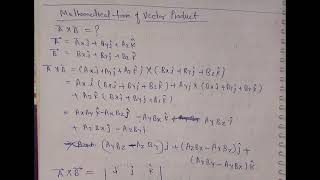 Mathematical form of Vector Product
A x B = ?
A = Axi + Ayj + Azk
B = Bxi + Byj + Bzk
A x B = (Axi + Ayj + Azk) x (Bxi + Byj + Bzk)
= Axi (Bxi + Byj + Bzk) + Ayj x (Bxi + Byj + Bzk)
+ Azk (Bxi + Byj + Bzk)
= AxByk - AxBzj - AyBxk AyBzi
+ AzBxj - AzByi
(AyBz - AzBy)i + (AzBx - AxBz)j +
A x B = | i j k